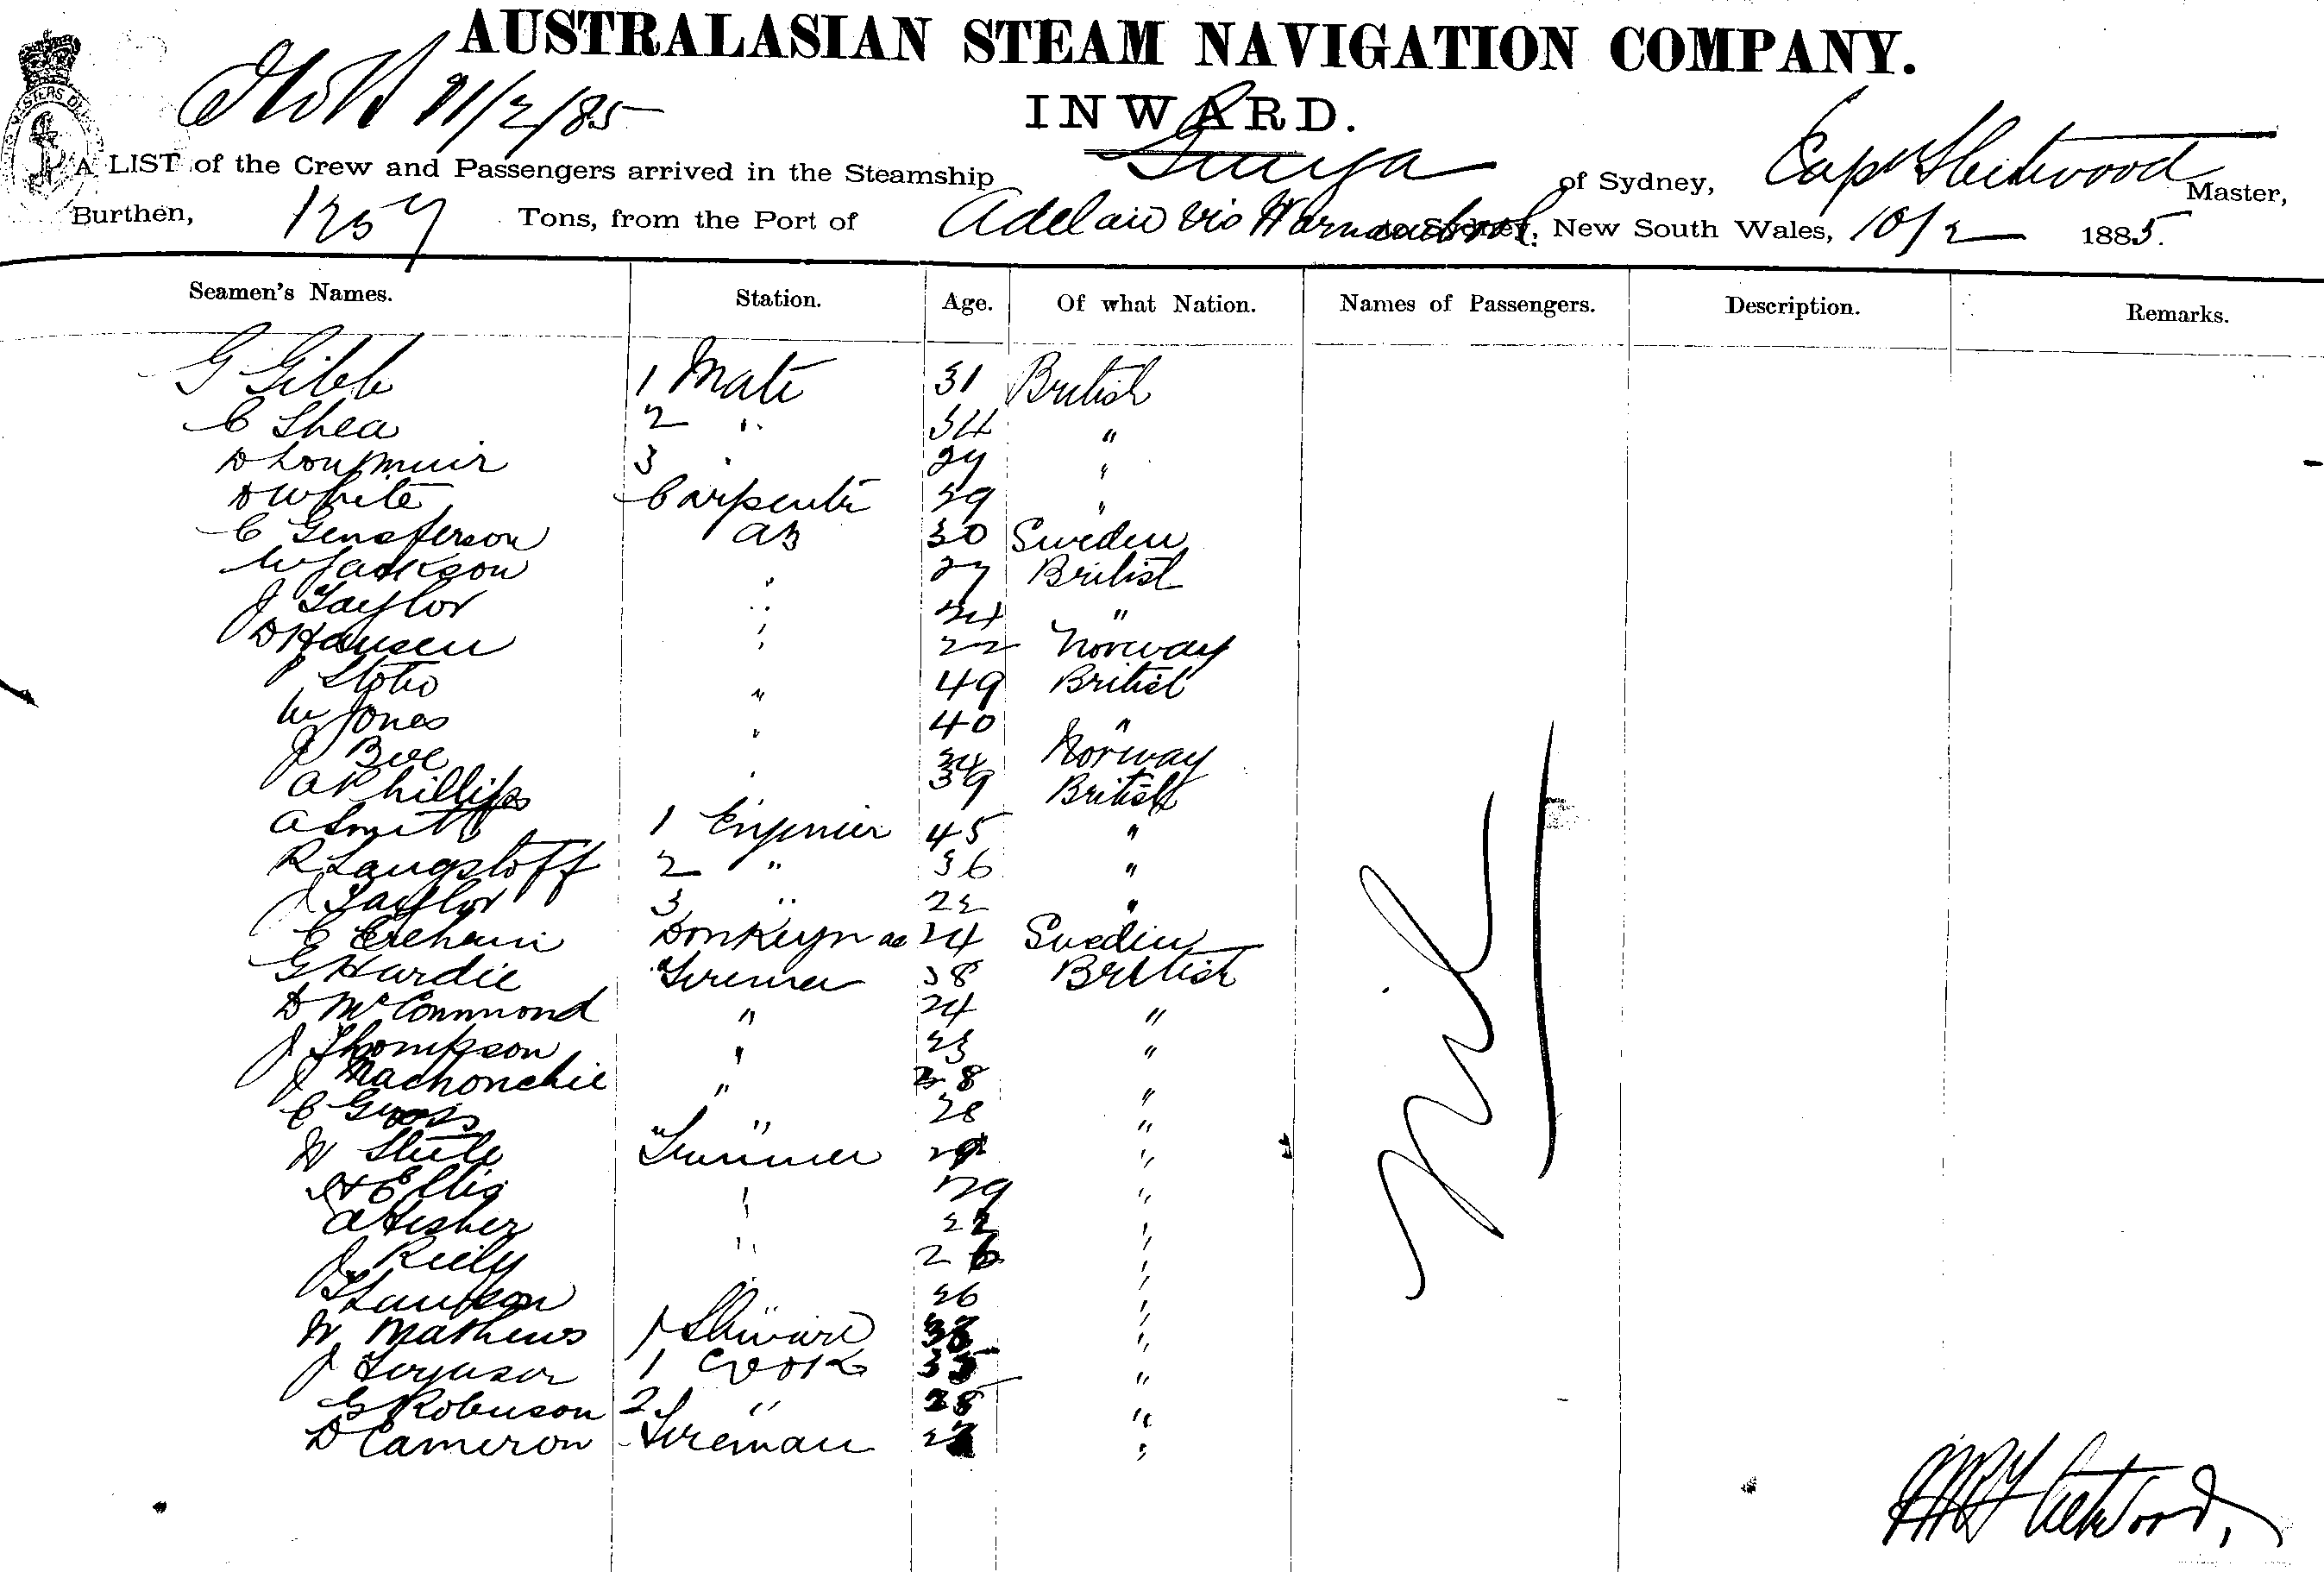 AUSTRALASIAN STEAM NAVIGATION COMPANY.
11/2/85
INWARD.
A LIST of the Crew and Passengers arrived in the Steamship Gunga of Sydney, Capt Fleetwood Master,
Burthen, 1257 Tons, from the Port of Adelaid via Warnambool to Sydney, New South Wales, 10/2 1885.
Seamen's Names. Station. Age. Of what Nation. Names of Passengers. Description. Remarks.
G Gibb 1 Mate 31 British
C Shea 2 " 34 "
D Loumuir 3 " "
D White Carpenter 29 "
C Gensferson AB 30 Sweden
W Jackson " 27 British
J Taylor " "
D Hansen " 22 Norway
P Stoto " 49 British
W Jones " 40 "
J Boe " 34 Norway
A Phillips " 39 British
A Smith 1 Engineer 45 "
R Langstoff 2 " 36 "
J Taylor 3 " 22 "
C Donkeyman 24 Sweden
G Hardie Fireman 38 British
D McCommond " 24 "
J Thompson " 23 "
J Machonchie " 38 "
C Gross " 28 "
W Steele Trimmer "
H Ellis " 29 "
A Fisher " 22 "
J Riely " 26 "
Lawson " 26 "
W Mathews 1 Steward 38 "
J Ferguson 1 Cook 35 "
G Robinson 2 " 28 "
D Cameron Fireman "
Nil
Fleetwood